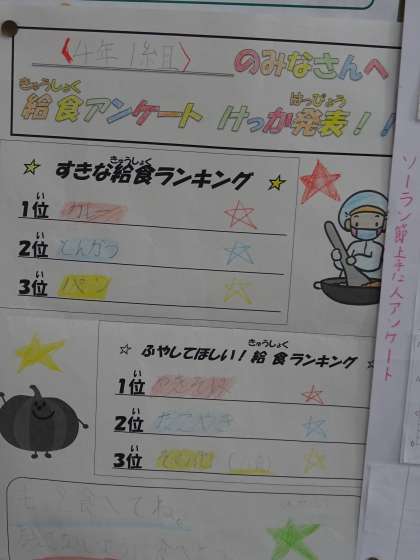 〈4年1組〉のみなさんへ
きゅうしょく はっぴょう
給食アンケート けっか発表!!
きゅうしょく
☆ すきな給食ランキング ☆
い
1位 カレー
い
2位 とんかつ
い
3位 パン
きゅうしょく
☆ ふやしてほしい!給食ランキング ☆
い
1位
い
2位 たこやき
い
3位
食べてね。
ソーラン節上手な人アンケート